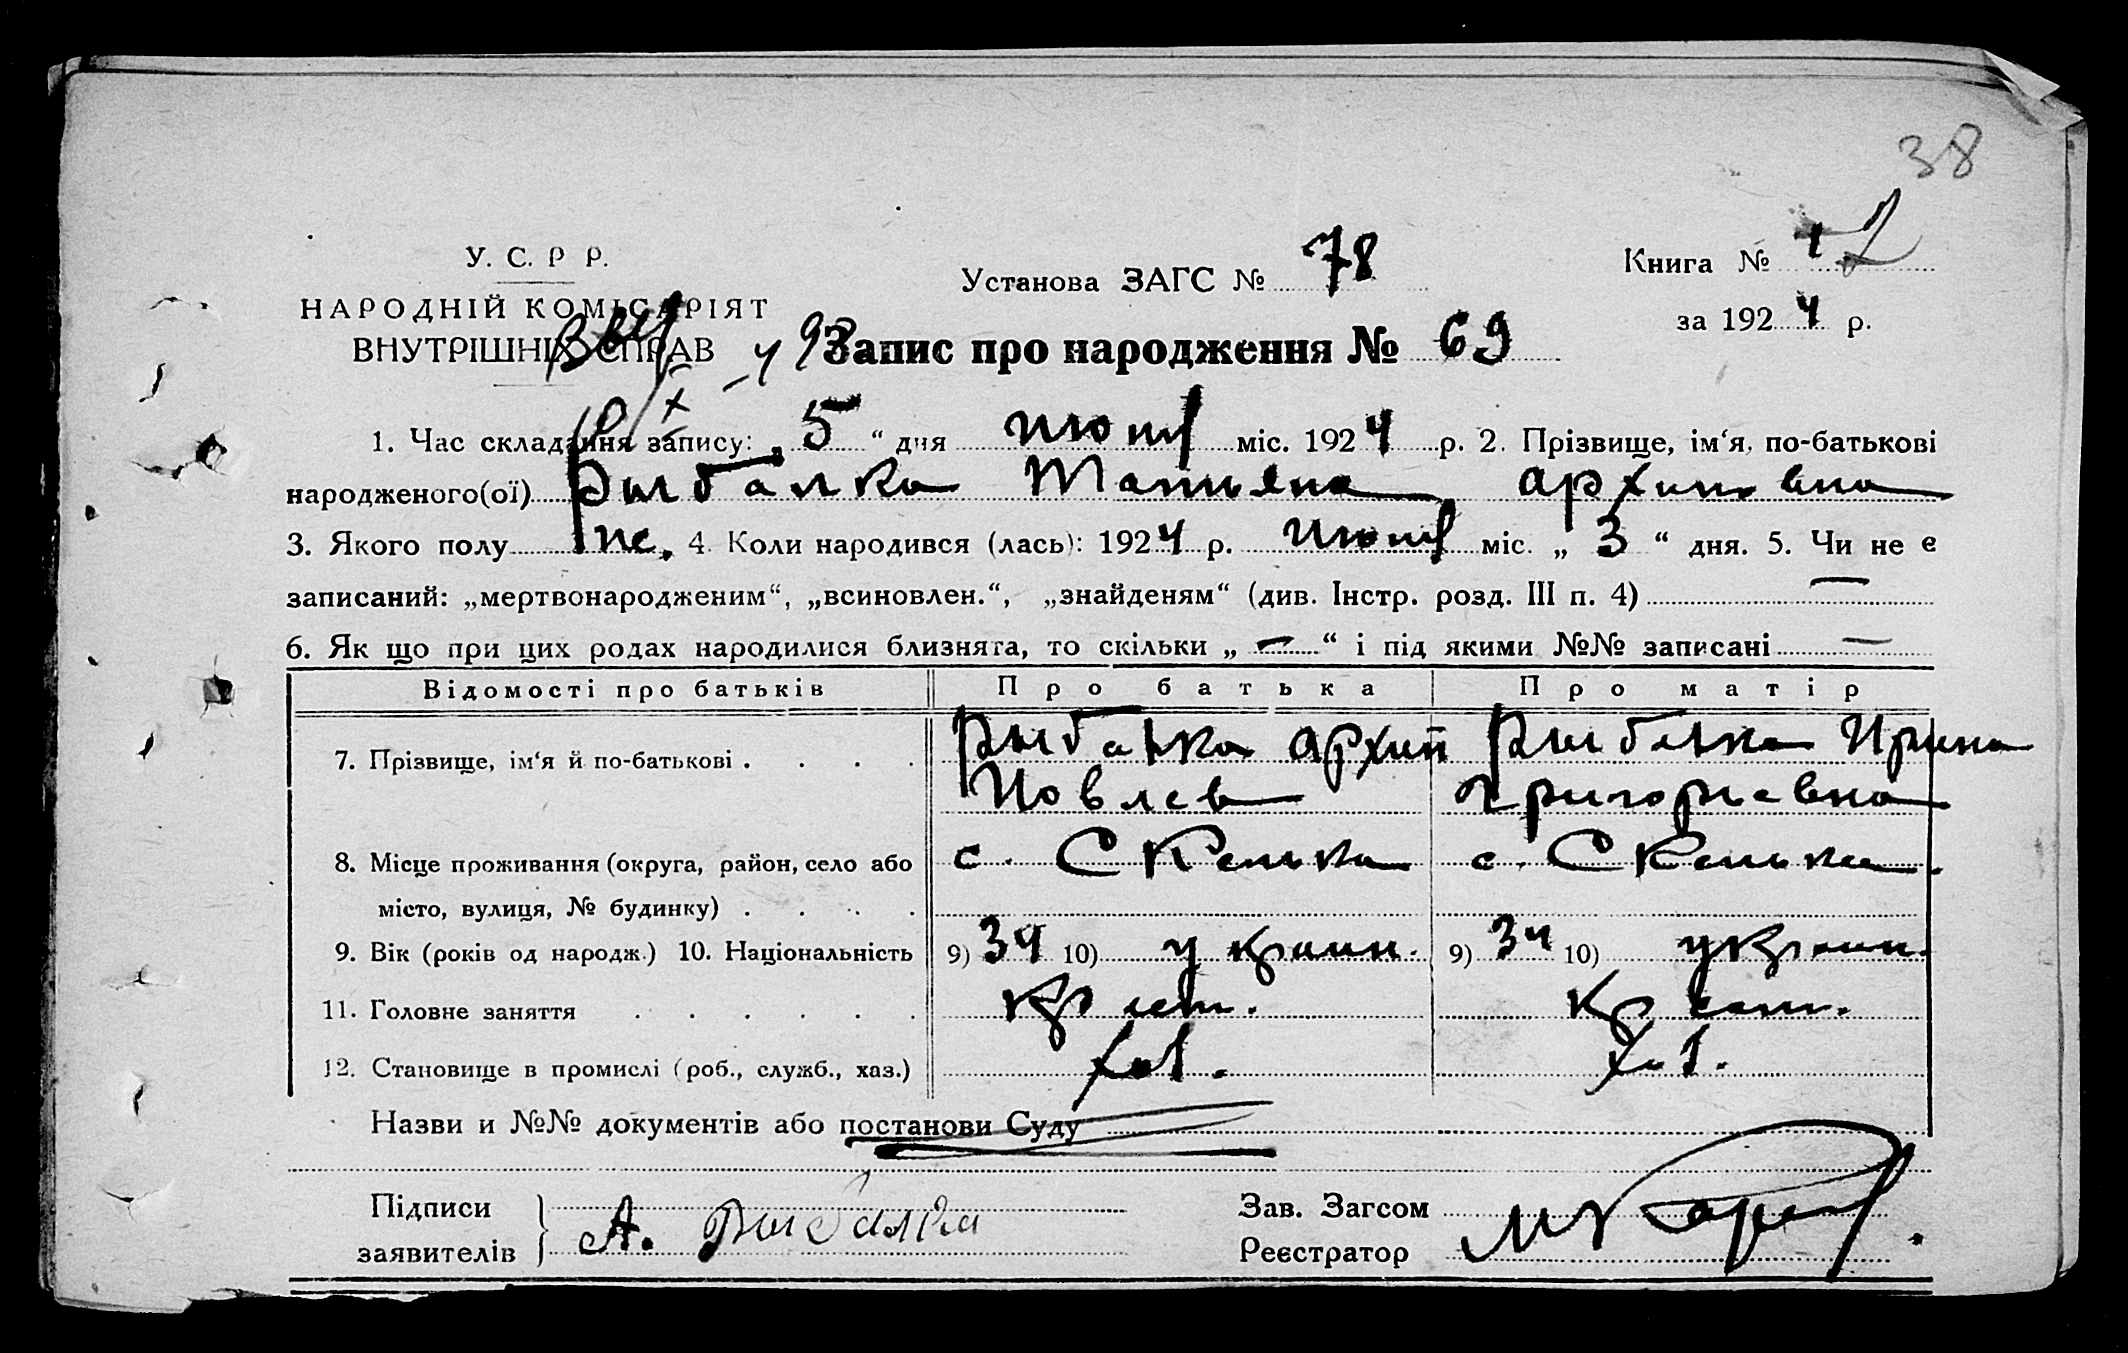 38
У. С. Р Р.
НАРОДНІЙ КОМІСАРІЯТ
ВНУТРІШНІХ СПРАВ
Установа ЗАГС № 78
Книга № 1 2
за 1924 р.
Запис про народження № 69
1. Час складання запису: „ 5 “ дня июня міс. 1924 р. 2. Прізвище, ім‘я, по-батькові
народженого(ої) Рыбалка Татьяна Архиповна
3. Якого полу же. 4. Коли народився (лась): 1924 р. июня міс. „ 3 “ дня. 5. Чи не є
записаний: „мертвонародженим“, „всиновлен.“, „знайденям“ (див. Інстр. розд. III п. 4) —
6. Як що при цих родах народилися близнята, то скільки „ — “ і під якими №№ записані —
Відомості про батьків Про батька Про матір
7. Прізвище, ім‘я й по-батькові . . . . Рыбалка Архип Рыбалка Ирина
Повлев Григорьевна
8. Місце проживання (округа, район, село або с. Скелька с. Скелька.
місто, вулиця, № будинку) . . . .
9. Вік (років од народж.) 10. Національність 9) 34 10) украин. 9) 34 10) украин.
11. Головне заняття . . . . . . крест. крест.
12. Становище в промислі (роб., служб., хаз.) хоз. хоз.
Назви и №№ документів або постанови Суду
Підписи
заявителів
А. Рыбалка
Зав. Загсом
Реєстратор